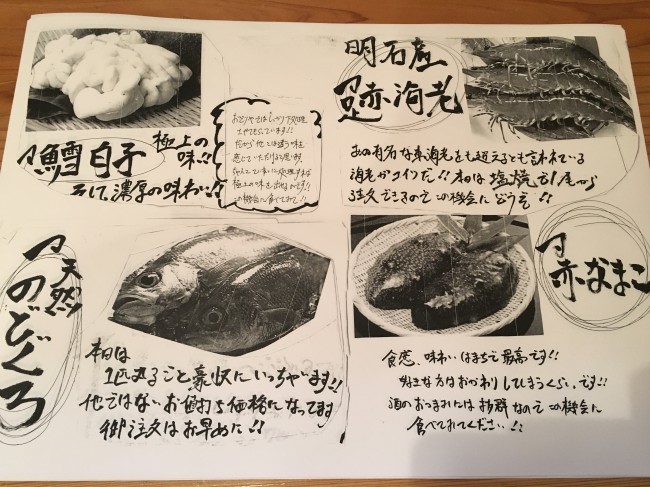 鱈白子
極上の
味い!!
そして、濃厚の味わい!!
明石産
赤海老
あの有名な車海老をも超えるとも言われている
海老がコイツだ!!本日は塩焼で1尾から
注文できるのでこの機会にどうぞ!!
天然
のどぐろ
本日は
1匹丸ごと豪快にいっちゃいます!!
他ではないお値打ち価格になってます
御注文はお早めに!!
赤なまこ
食感、味わいはまじで最高です!!
好きな方はおかわりしてしまうくらい、です!!
酒のおつまみには抜群なのでこの機会に
食べてみてください!!